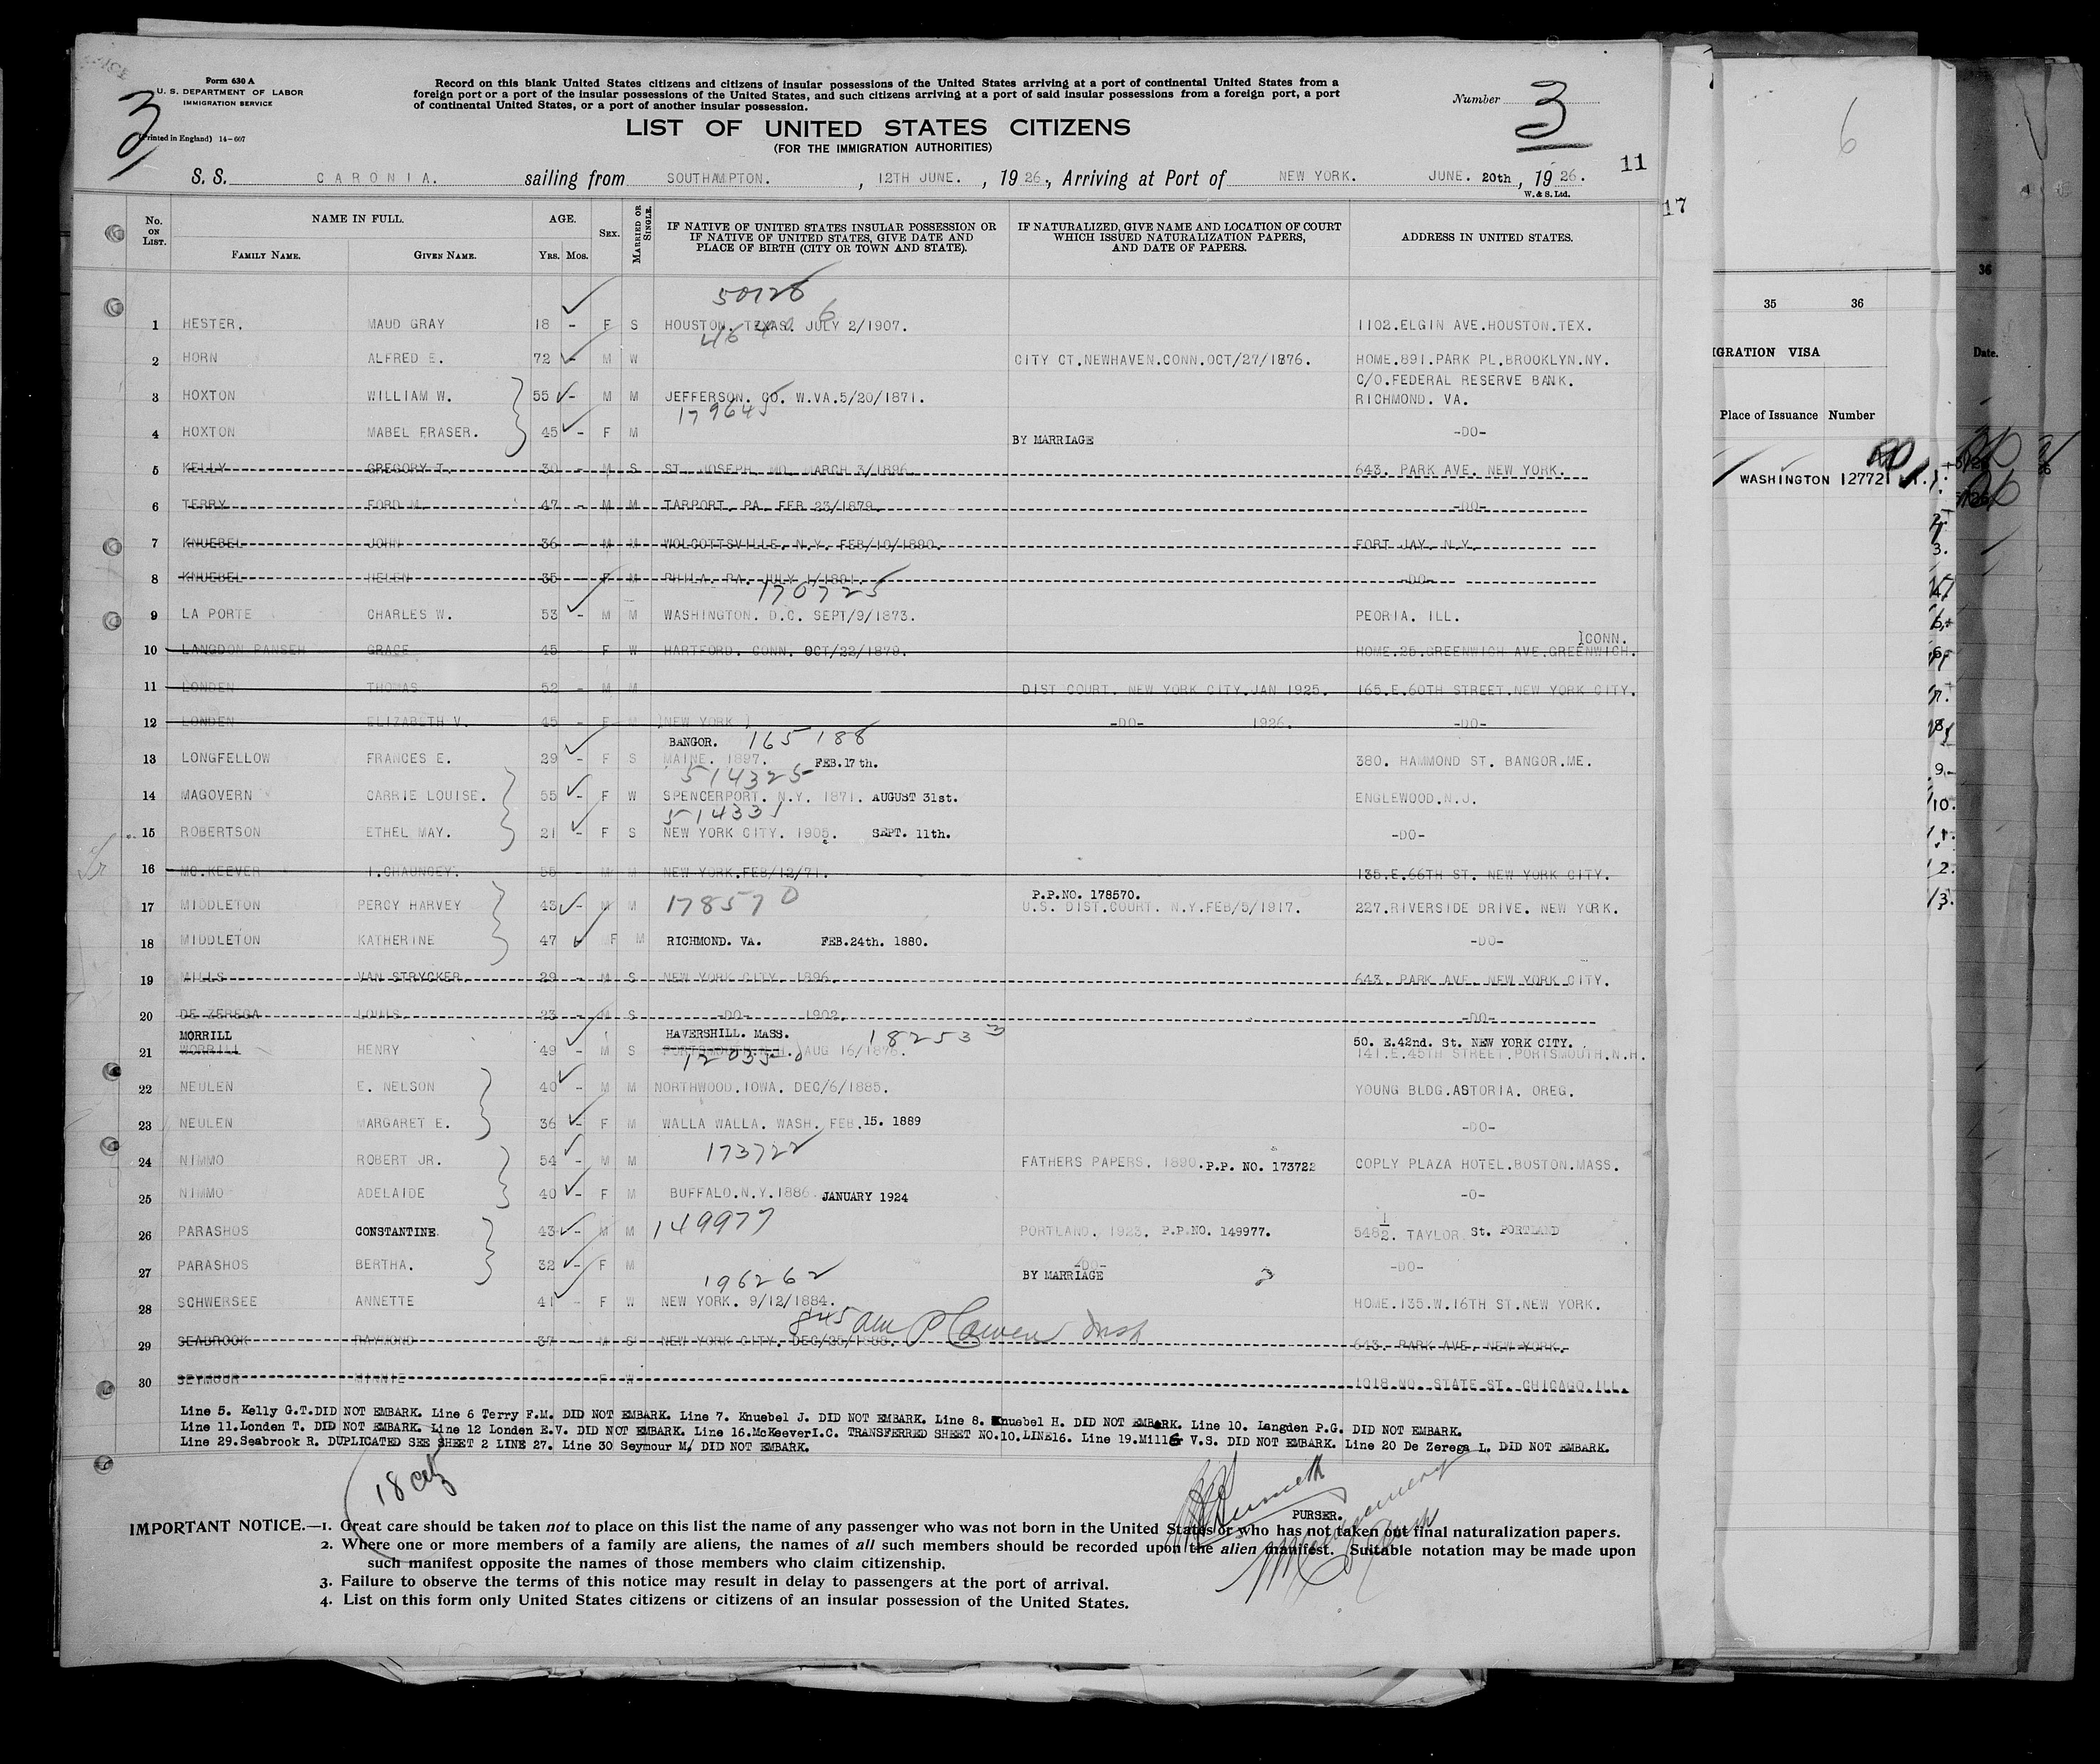 Form 630 A
U. S. DEPARTMENT OF LABOR
IMMIGRATION SERVICE
(Printed in England) 14-607
3
Record on this blank United States citizens and citizens of insular possessions of the United States arriving at a port of continental United States from a
foreign port or a port of the insular possessions of the United States, and such citizens arriving at a port of said insular possessions from a foreign port, a port
of continental United States, or a port of another insular possession.
Number 3
LIST OF UNITED STATES CITIZENS
(FOR THE IMMIGRATION AUTHORITIES)
11
S. S. CARONIA. sailing from SOUTHAMPTON. , 12TH JUNE. , 1926., Arriving at Port of NEW YORK. JUNE. 20th, 1926.
W. & S. Ltd.
No. ON LIST. NAME IN FULL. AGE. SEX. MARRIED OR SINGLE. IF NATIVE OF UNITED STATES INSULAR POSSESSION OR IF NATIVE OF UNITED STATES, GIVE DATE AND PLACE OF BIRTH (CITY OR TOWN AND STATE). IF NATURALIZED, GIVE NAME AND LOCATION OF COURT WHICH ISSUED NATURALIZATION PAPERS, AND DATE OF PAPERS. ADDRESS IN UNITED STATES.
FAMILY NAME. GIVEN NAME. YRS. MOS.
50728
1 HESTER. MAUD GRAY 18 - F S HOUSTON. TEXAS. JULY 2/1907. 1102.ELGIN AVE.HOUSTON.TEX.
2 HORN ALFRED E. 72 - M W CITY CT.NEWHAVEN.CONN.OCT/27/1876. HOME.891.PARK PL.BROOKLYN.NY.
C/O.FEDERAL RESERVE BANK.
3 HOXTON WILLIAM W. 55 - M M JEFFERSON. CO. W.VA.5/20/1871. RICHMOND. VA.
179645
4 HOXTON MABEL FRASER. 45 - F M BY MARRIAGE -DO-
5 KELLY GREGORY T. 30 - M S ST. JOSEPH. MO. MARCH 3/1896. 643. PARK AVE. NEW YORK.
6 TERRY FORD M. 47 - M M TARPORT. PA. FEB 23/1879. -DO-
7 KNUEBEL JOHN 36 - M M WOLCOTTSVILLE. N.Y. FEB/10/1890. FORT JAY. N.Y.
8 KNUEBEL HELEN 35 - F M PHILA. PA. JULY 1/1891. -DO-
170725
9 LA PORTE CHARLES W. 53 - M M WASHINGTON. D.C. SEPT/9/1873. PEORIA. ILL.
]CONN.
10 LANGDON PANSEH GRACE 45 - F W HARTFORD. CONN. OCT/22/1879. HOME.25.GREENWICH AVE.GREENWICH.
11 LONDEN THOMAS 52 - M M DIST COURT. NEW YORK CITY.JAN 1925. 165.E.60TH STREET.NEW YORK CITY.
12 LONDEN ELIZABETH V. 45 - F M )NEW YORK ) -DO- 1926. -DO-
BANGOR. 165188
13 LONGFELLOW FRANCES E. 29 - F S MAINE. 1897. FEB.17th. 380. HAMMOND ST. BANGOR.ME.
514325
14 MAGOVERN CARRIE LOUISE. 55 - F W SPENCERPORT. N.Y. 1871. AUGUST 31st. ENGLEWOOD.N.J.
514331
15 ROBERTSON ETHEL MAY. 21 - F S NEW YORK CITY. 1905. SEPT. 11th. -DO-
16 MC.KEEVER I.CHAUNCEY. 55 - M M NEW YORK.FEB/12/71. 135.E.66TH ST. NEW YORK CITY.
P.P.NO. 178570.
17 MIDDLETON PERCY HARVEY 43 - M M 178570 U.S. DIST.COURT. N.Y.FEB/5/1917. 227.RIVERSIDE DRIVE. NEW YORK.
18 MIDDLETON KATHERINE 47 F M RICHMOND. VA. FEB.24th. 1880. -DO-
19 MILLS VAN STRYCKER. 29 - M S NEW YORK CITY. 1896. 643. PARK AVE. NEW YORK CITY.
20 DE ZEREGA LOUIS. 23 - M S -DO- 1902. -DO-
MORRILL HAVERSHILL. MASS. 182533 50. E.42nd. St. NEW YORK CITY.
21 WORRILL HENRY 49 - M S PORTSMOUTH.N.H. AUG 16/1876. 141.E.45TH STREET.PORTSMOUTH.N.H.
22 NEULEN E. NELSON 40 - M M NORTHWOOD.IOWA. DEC/6/1885. YOUNG BLDG.ASTORIA. OREG.
23 NEULEN MARGARET E. 36 - F M WALLA WALLA. WASH. FEB.15. 1889 -DO-
173722
24 NIMMO ROBERT JR. 54 - M M FATHERS PAPERS. 1890.P.P. NO. 173722 COPLY PLAZA HOTEL.BOSTON.MASS.
25 NIMMO ADELAIDE 40 - F M BUFFALO.N.Y.1886 JANUARY 1924 -O-
26 PARASHOS CONSTANTINE 43 - M M 149977 PORTLAND. 1923. P.P.NO. 149977. 548 1/2. TAYLOR St. PORTLAND
27 PARASHOS BERTHA. 32 - F M BY MARRIAGE -DO-
196262
28 SCHWERSEE ANNETTE 41 - F W NEW YORK. 9/12/1884. HOME.135.W.16TH ST.NEW YORK.
845 am
29 SEABROOK RAYMOND 37 - M S NEW YORK CITY. DEC/25/1888. 643. PARK AVE. NEW YORK.
30 SEYMOUR MINNIE F W 1018 NO. STATE ST. CHICAGO.ILL.
Line 5. Kelly G.T.DID NOT EMBARK. Line 6 Terry F.M. DID NOT EMBARK. Line 7. Knuebel J. DID NOT EMBARK. Line 8. Knuebel H. DID NOT EMBARK. Line 10. Langden P.G. DID NOT EMBARK.
Line 11.Londen T. DID NOT EMBARK. Line 12 Londen E.V. DID NOT EMBARK. Line 16.McKeeverI.C. TRANSFERRED SHEET NO.10.LINE16. Line 19.Mills V.S. DID NOT EMBARK. Line 20 De Zerega L. DID NOT EMBARK.
Line 29.Seabrook R. DUPLICATED SEE SHEET 2 LINE 27. Line 30 Seymour M, DID NOT EMBARK.
PURSER.
IMPORTANT NOTICE.—1. Great care should be taken not to place on this list the name of any passenger who was not born in the United States or who has not taken out final naturalization papers.
2. Where one or more members of a family are aliens, the names of all such members should be recorded upon the alien manifest. Suitable notation may be made upon
such manifest opposite the names of those members who claim citizenship.
3. Failure to observe the terms of this notice may result in delay to passengers at the port of arrival.
4. List on this form only United States citizens or citizens of an insular possession of the United States.
17
6
35 36
IGRATION VISA
Place of Issuance Number
WASHINGTON 127721
36
Date.